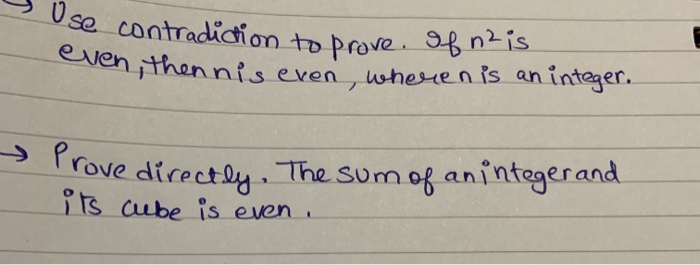 → Use contradiction to prove. If n² is
even, then n is even, where n is an integer.
→ Prove directly. The sum of an integer and
its cube is even.